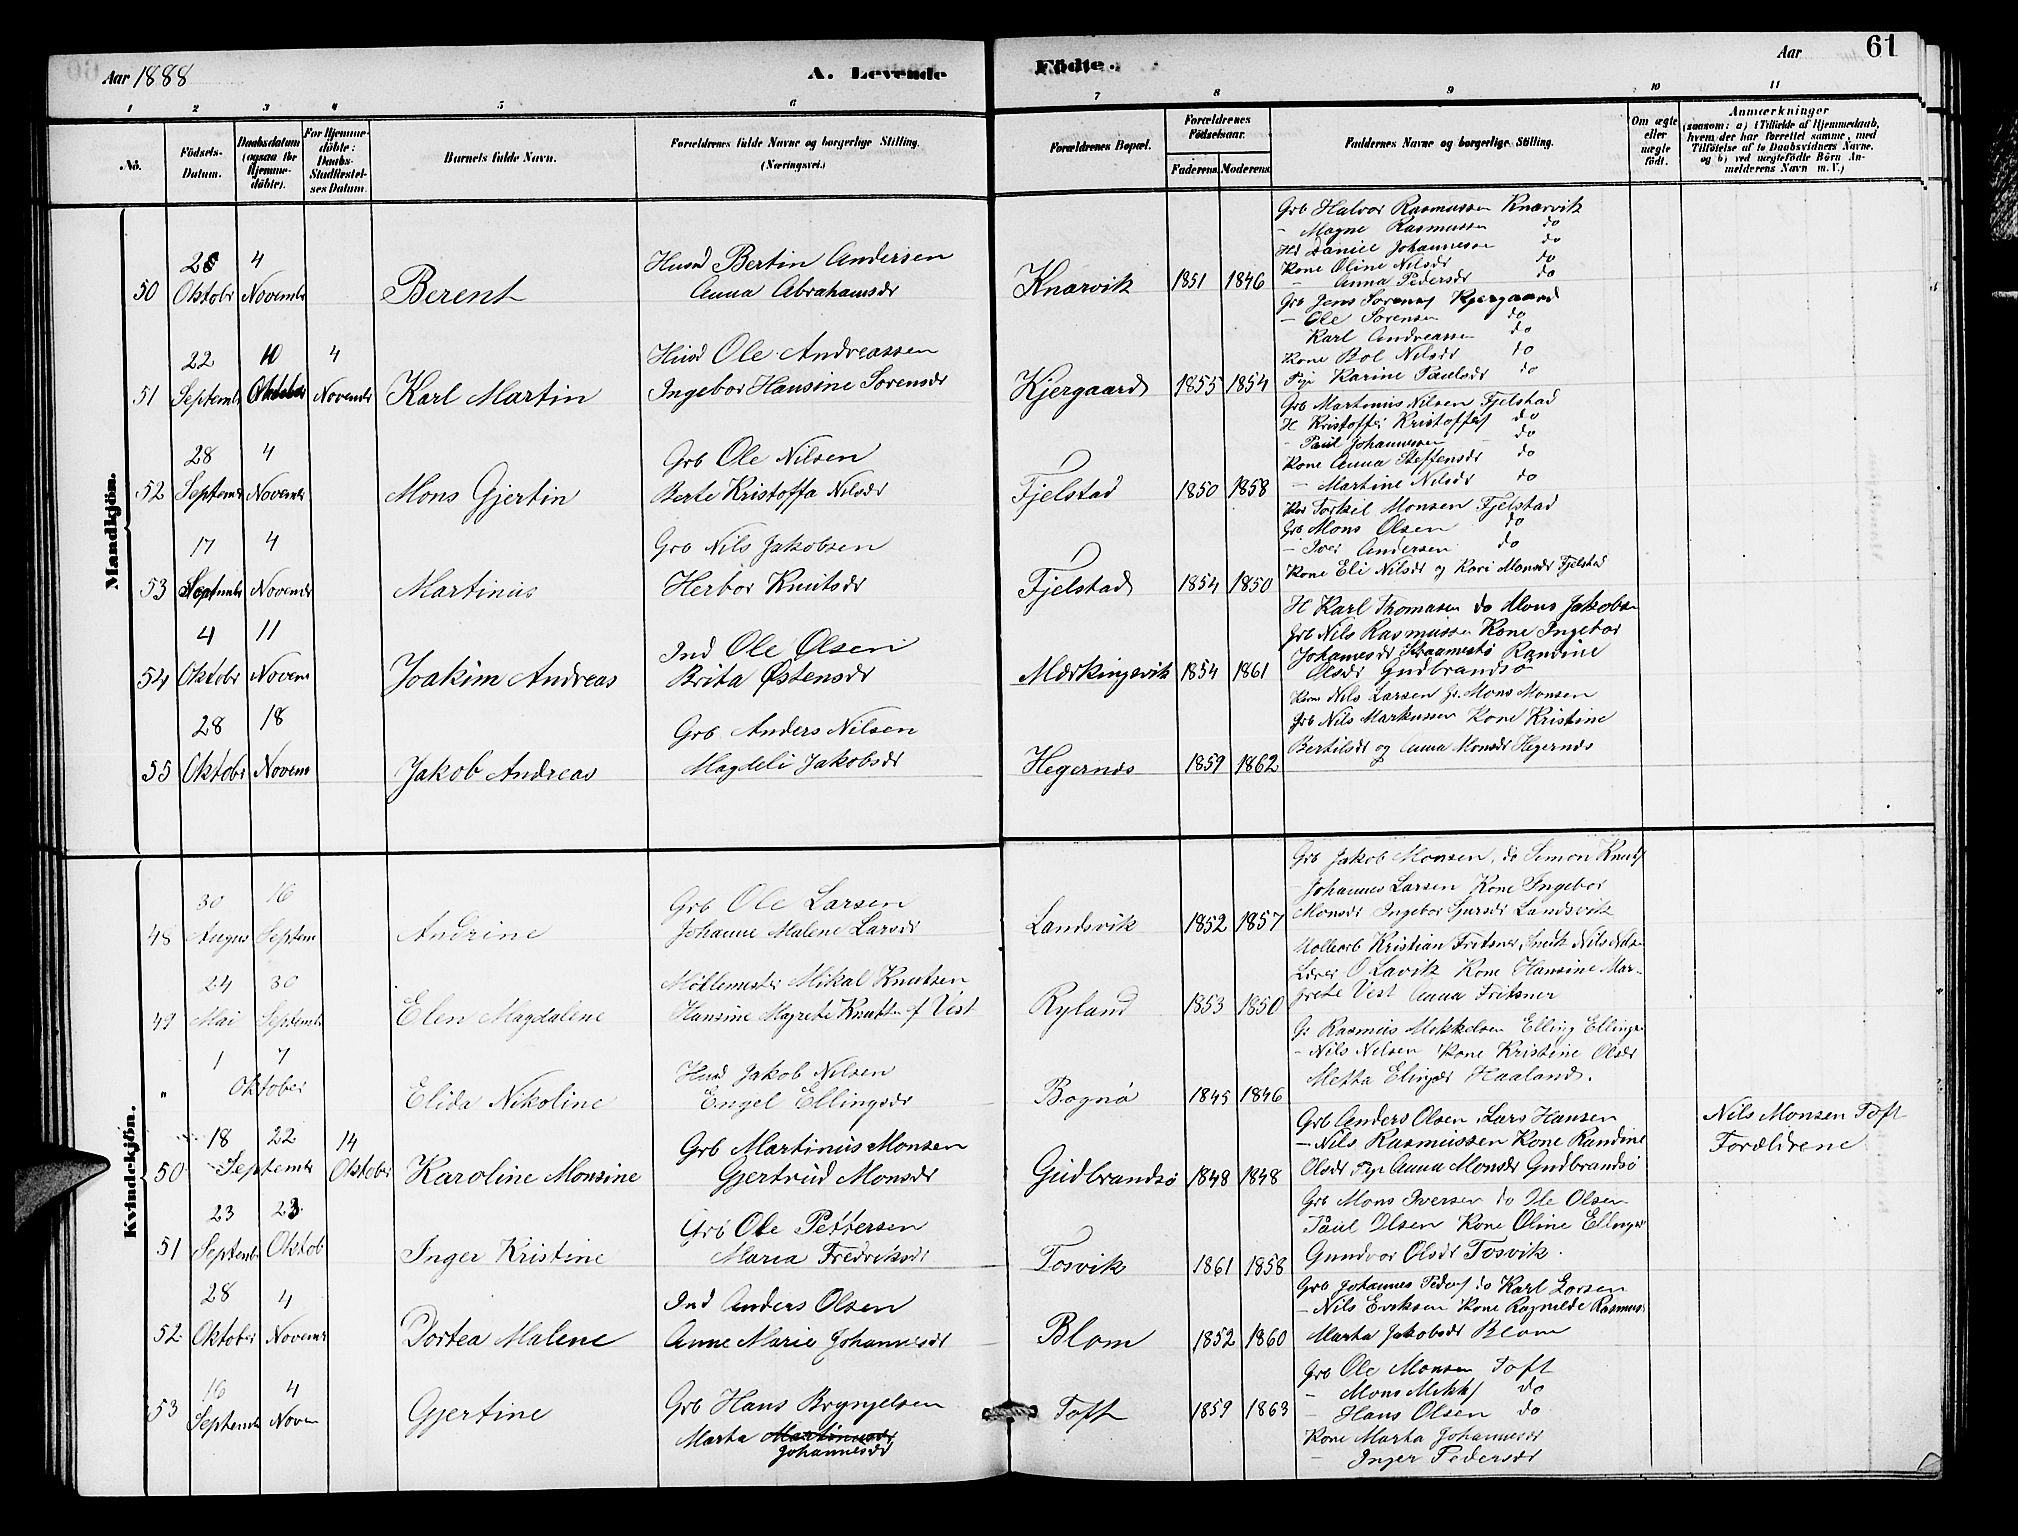 Aar 1888
A. Levende
Födte.
Aar
61
1 2 3 4 5 6 7 8 9 10 11
No.
Födsels-
Datum.
Daabsdatum
(ogsaa for
Hjemme-
döbte).
For Hjemme-
döbte:
Daabs-
Stadfæstel-
ses Datum.
Barnets fulde Navn.
Forældrenes fulde Navne og borgerlige Stilling.
(Næringsvei.)
Forældrenes Bopæl.
Forældrenes
Födselsaar.
Faderens
Moderens
Faddernes Navne og borgerlige Stilling.
Om ægte
eller
uægte
födt.
Anmærkninger
(saasom: a) i Tilfælde af Hjemmedaab,
hvem der har forrettet samme, med
Tilföielse af to Daabsvidners Navne,
og b) ved uægtefödte Börn An-
melderens Navn m.V.)
Mandkjön.
50
Oktobr
4
Novembr
Berent
Husd Bertin Andersen
Anna Abrahamsdr
Knarvik
1851
1846
Grb Halvor Rasmussen Knarvik
- Magne Rasmussen do
Hd Daniel Johannesen do
Kone Oline Nilsdr do
- Anna Pedersdr do
51
22
Septembr
10
Oktober
4
Novembr
Karl Martin
Husd Ole Andreassen
Ingebor Hansine Sorensdr
Kjergaard
1855
1854
Grb Jens Sorensf Kjergaard
- Ole Sorensen do
Karl Andreassen do
Kone Bol Nilsdr do
Pige Karine Paulsdr do
52
28
Septembr
4
Novembr
Mons Gjertin
Grb Ole Nilsen
Berte Kristoffa Nilsdr
Fjelstad
1850
1858
Grb Martinus Nilsen Fjelstad
H Kristoffer Kristoffersf do
- Paul Johannessen do
Kone Anna Steffensdr do
- Martine Nilsdr do
53
17
Septembr
4
Novembr
Martinus
Grb Nils Jakobsen
Herbor Knutsdr
Fjelstad
1854
1850
Torkel Monsen Fjelstad
Grb Mons Olsen do
- Iver Andersen do
Kone Eli Nilsdr og Kari Monsdr Fjelstad
54
4
Oktobr
11
Novem
Joakim Andreas
Ind Ole Olsen
Brita Østensdr
Mærkingsvik
1854
1861
H Karl Thomasen do Mons Jakobsen
Grb Nils Rasmussen Kone Ingebor
Johanesdr Straumestø Randine
Olsdr Gudbrandsø
55
28
Oktobr
18
Novem
Jakob Andreas
Grb Anders Nilsen
Magdeli Jakobsdr
Hegernes
1859
1862
Nils Larsen Gr. Mons Monsen
Grb Nils Markussen Kone Kristine
Bertilsdr og Anna Monsdr Hegernes
Kvindekjön.
48
30
Augus
16
Septem
Andrine
Grb Ole Larsen
Johanne Malene Larsdr
Landsvik
1852
1857
Grb Jakob Monsen, do Simon Knutsf
Johannes Larsen Kone Ingebor
Monsdr Ingebor Sjursdr Landsvik
49
24
Mai
30
Septembr
Elen Magdalene
Möllemester Mikal Knutsen
Hansine Magrete Knutsen f Vest
Ryland
1853
1850
Kristian Fritsner, Nils
Lærer O Lavik Kone Hansine Mar-
grete Vest Anna Fritsner
"
1
7
Oktober
Elida Nikoline
Husd Jakob Nilsen
Engel Ellingsdr
Bognø
1845
1846
Gr Rasmus Mikkelsen Elling Ellings
- Nils Nilsen Kone Kristine Olsdr
Metta Elingsdr Haaland.
50
18
22
Septembr
14
Oktober
Karoline Monsine
Grb Martinus Monsen
Gjertrud Monsdr
Gudbrandsø
1848
1848
Grb Anders Olsen, Lars Hansen
- Nils Rasmussen Kone Randine
Olsdr Pige Anna Monsdr Gudbrandsø
Nils Monsen Toft
Forældrene
51
23
Septembr
23
Oktob
Inger Kristine
Grb Ole Pettersen
Maria Fredriksdr
Tosvik
1861
1858
Grb Mons Iversen do Ole Olsen
Paul Olsen Kone Oline Ellingsdr
Gundvor Olsdr Tosvik.
52
28
Oktober
4
Novembr
Dortea Malene
Ind Anders Olsen
Anne Marie Johannesdr
Blom
1852
1860
Grb Johannes Pedersf do Karl Larsen
- Nils Eriksen Kone Ragnilde Rasmus
Marta Jakobsdr Blom
53
16
Septembr
4
Novem
Gjertine
Grb Hans Brynjelsen
Marta Martinusdr
Johannesdr
Toft
1859
1863
Grb Ole Monsen Toft
- Mons Mikkf do
- Hans Olsen do
Kone Marta Johannesdr
- Inger Pedersdr